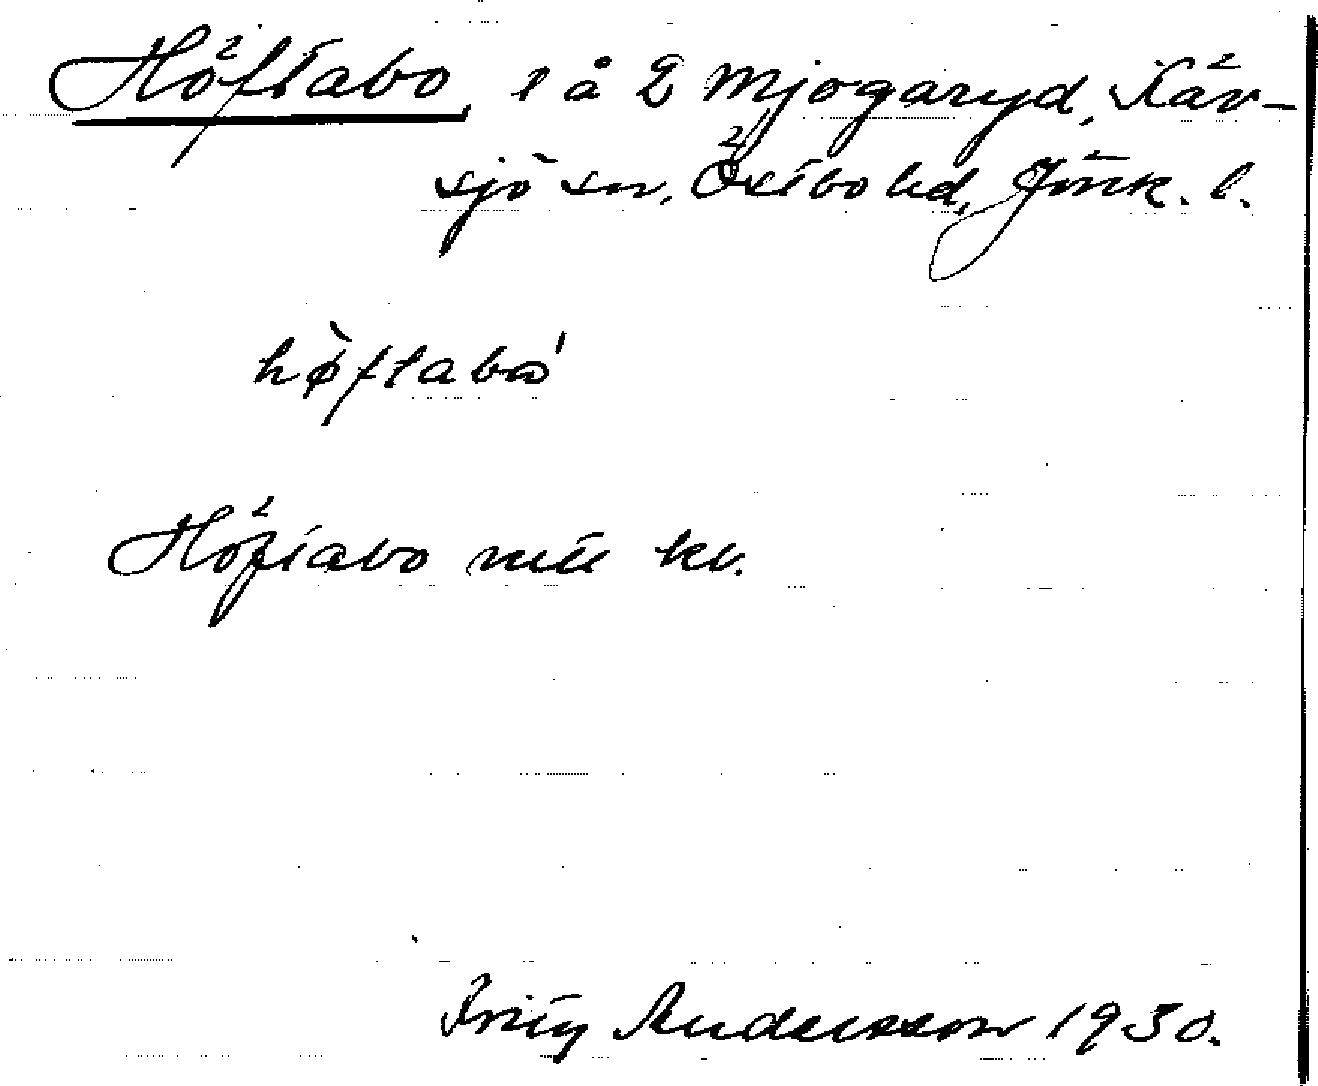 Höftabo, t å 2 Mjogaryd, Käv-
sjö sn, Östbo hd, Jönk. l.
hø̀ftabo'
Höftabo mtl kv.
Fritz Andersson 1930.